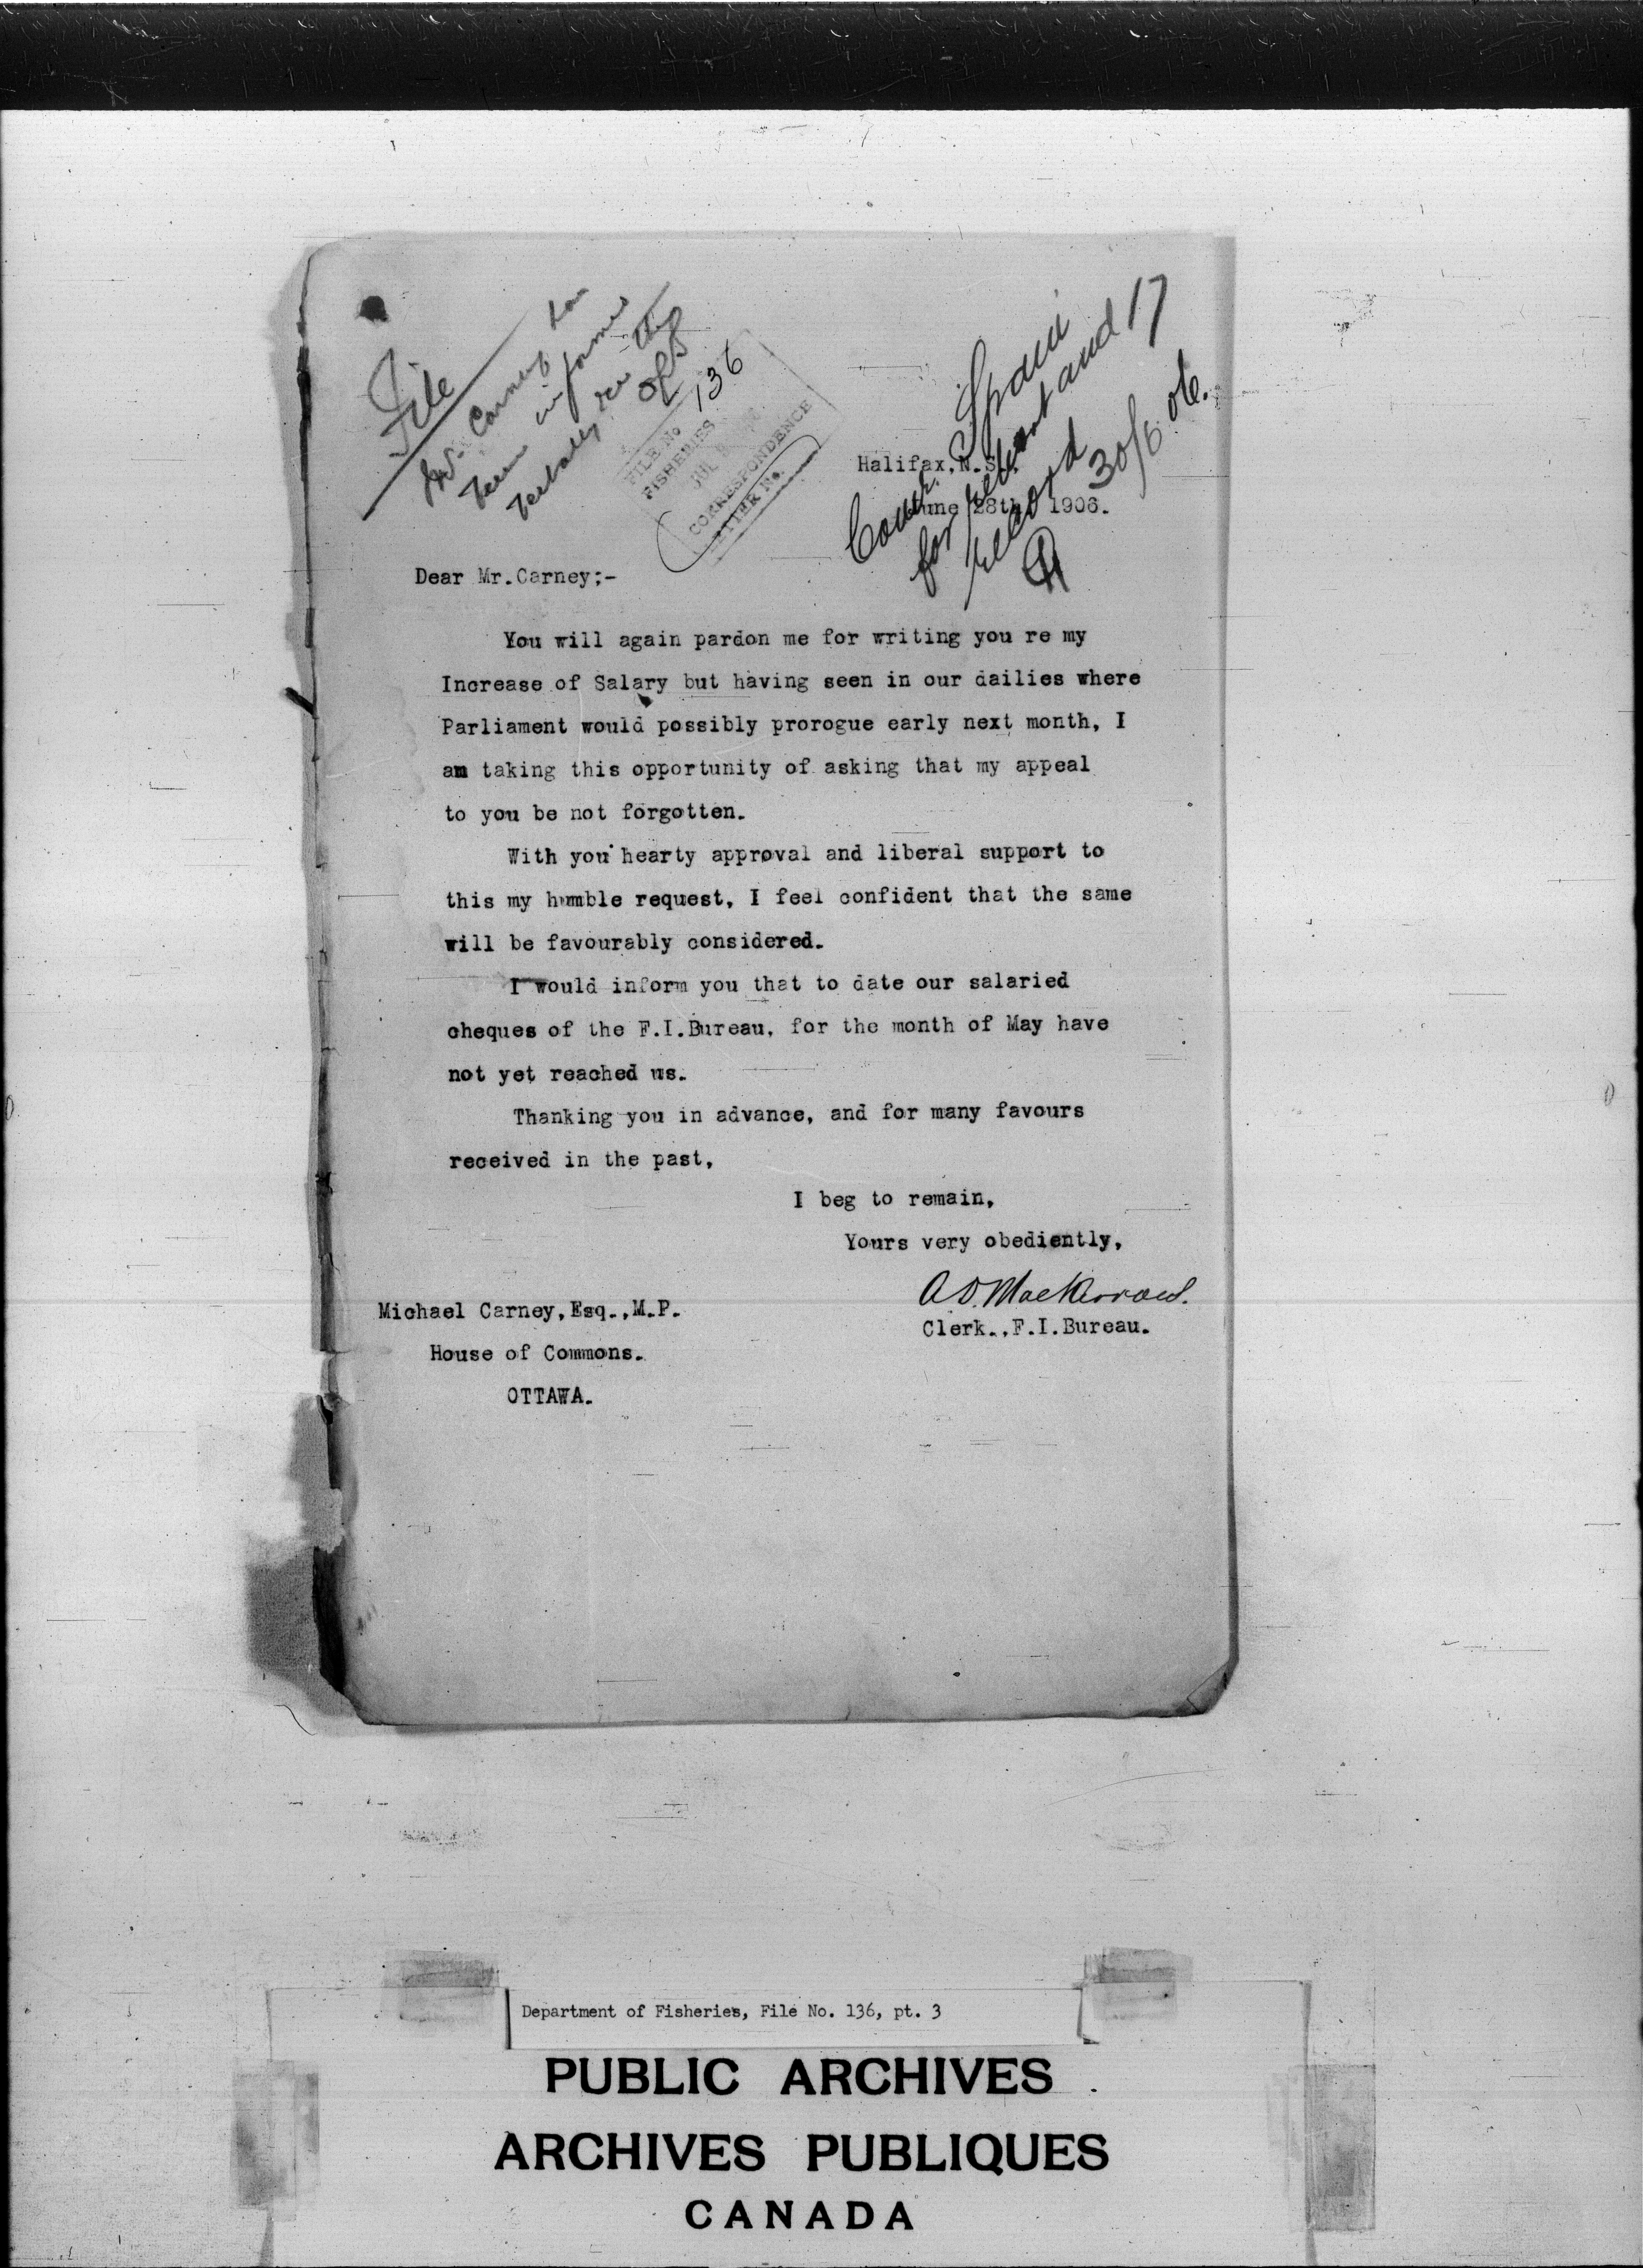 File
Mr. Carney has
been informed
verbally re this
136
FILE No
FISHERIES
JUL
CORRESPONDENCE
LETTER No.
Com. Spain
for and 17
record 30/6 06.
Halifax, N.S.,
June 28th 1906.
Dear Mr. Carney;-
You will again pardon me for writing you re my
Increase of Salary but having seen in our dailies where
Parliament would possibly prorogue early next month, I
am taking this opportunity of asking that my appeal
to you be not forgotten.
With you hearty approval and liberal support to
this my humble request, I feel confident that the same
will be favourably considered.
I would inform you that to date our salaried
cheques of the F.I.Bureau, for the month of May have
not yet reached us.
Thanking you in advance, and for many favours
received in the past,
I beg to remain,
Yours very obediently,
A.D. MacKerrow.
Clerk., F.I.Bureau.
Michael Carney, Esq., M.P.
House of Commons.
OTTAWA.
Department of Fisheries, File No. 136, pt. 3
PUBLIC ARCHIVES
ARCHIVES PUBLIQUES
CANADA